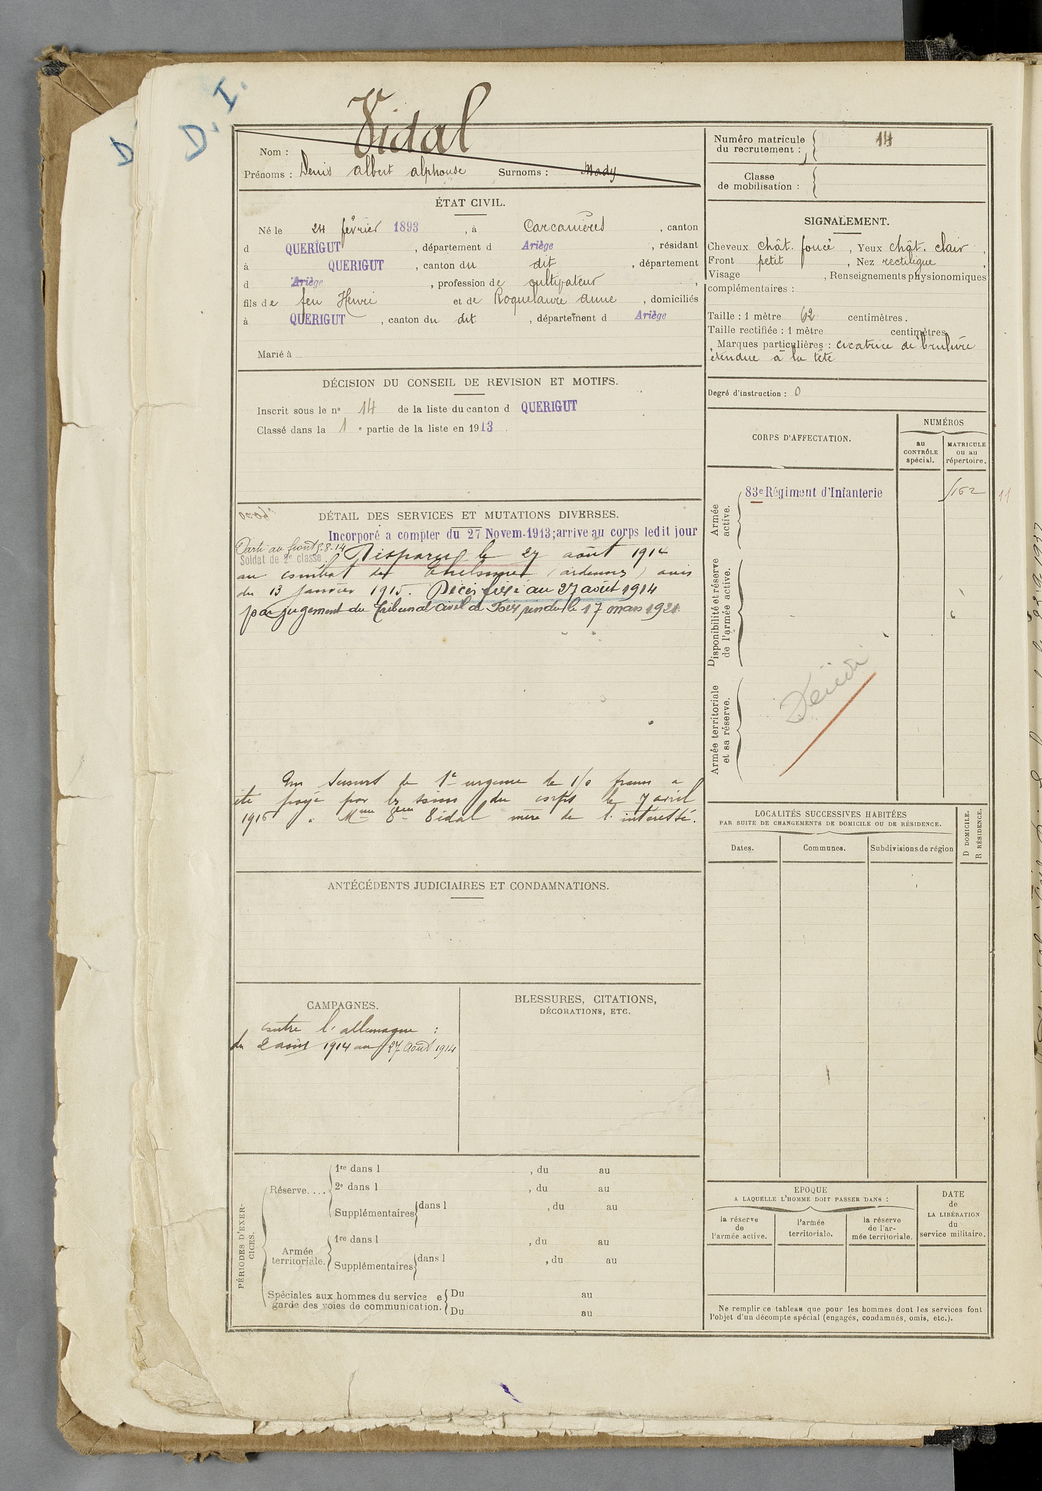 D. I.
D
Vidal
Nom :
Prénoms : Denis albert alphonse Surnoms : Mady
ÉTAT CIVIL.
Né le 24 février 1893, à Carcanières, canton
d QUERIGUT, département d Ariège, résidant
à QUERIGUT, canton du dit, département
d Ariège, profession de cultivateur,
fils de feu Henri et de Roquelaure Anne, domiciliés
à QUERIGUT, canton du dit, département d Ariège
Marié à
DÉCISION DU CONSEIL DE REVISION ET MOTIFS.
Inscrit sous le nº 14 de la liste du canton d QUERIGUT
Classé dans la 1 e partie de la liste en 1913.
DÉTAIL DES SERVICES ET MUTATIONS DIVERSES.
Incorporé a compter du 27 Novem. 1913; arrive au corps ledit jour
Parti au front 5.8.14
Soldat de 2e classe. Disparu le 27 août 1914
au combat de (ardennes) avis
du 13 janvier 1915. Décès fixé au 27 août 1914
par jugement du Tribunal civil de Foix rendu le 17 mars 1921
Un secours de 1e urgence de francs a
été payé par les soins du corps le 7 avril
1916 à Mme Vve Vidal mère de l'intéressé.
ANTÉCÉDENTS JUDICIAIRES ET CONDAMNATIONS.
CAMPAGNES.
contre l'allemagne :
du 2 août 1914 au 27 août 1914
BLESSURES, CITATIONS,
DÉCORATIONS, ETC.
PÉRIODES D'EXER-
CICES.
Réserve....
1re dans l , du au
2e dans l , du au
Supplémentaires dans l , du au
Armée
territoriale.
1re dans l , du au
Supplémentaires dans l , du au
Spéciales aux hommes du service e
garde des voies de communication.
Du au
Du au
Numéro matricule
du recrutement : 14
Classe
de mobilisation :
SIGNALEMENT.
Cheveux chât. foncé, Yeux chât. clair,
Front petit, Nez rectiligne,
Visage , Renseignements physionomiques
complémentaires :
Taille : 1 mètre 62 centimètres.
Taille rectifiée : 1 mètre centimètres
Marques particulières : cicatrice de brulure
étendue à la tête
Degré d'instruction : 0
CORPS D'AFFECTATION.
NUMÉROS
au
CONTRÔLE
spécial.
MATRICULE
ou au
répertoire.
Armée
active.
83e Régiment d'Infanterie
Disponibilité et réserve
de l'armée active.
Armée territoriale
et sa réserve.
LOCALITÉS SUCCESSIVES HABITÉES
PAR SUITE DE CHANGEMENTS DE DOMICILE OU DE RÉSIDENCE.
Dates.
Communes.
Subdivisions de région
D DOMICILE.
R RÉSIDENCE.
EPOQUE
A LAQUELLE L'HOMME DOIT PASSER DANS :
la réserve
de
l'armée active.
l'armée
territoriale.
la réserve
de l'ar-
mée territoriale.
DATE
de
LA LIBÉRATION
du
service militaire.
Ne remplir ce tableau que pour les hommes dont les services font
l'objet d'un décompte spécial (engagés, condamnés, omis, etc.).